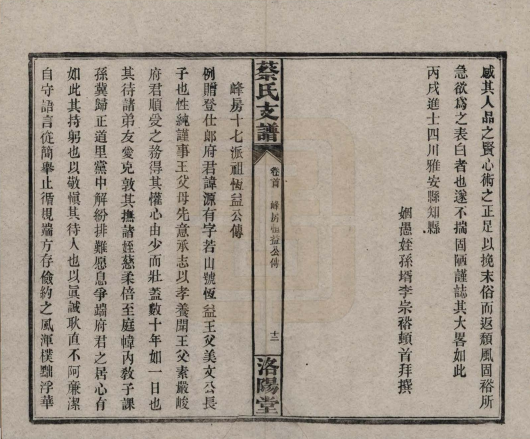 感其人品之賢心術之正足以挽末俗而返頹風固裕所
急欲爲之表白者也遂不揣固陋謹誌其大畧如此
丙戌進士四川雅安縣知縣
姻愚姪孫壻李宗裕頓首拜撰
蔡氏支譜
卷首
峰房恆益公傳
十二
洛陽堂
峰房十七派祖恆益公傳
例贈登仕郎府君諱源有字若山號恆益王父美文公長
子也性純謹事王父母先意承志以孝養聞王父素嚴峻
府君順受之務得其懽心由少而壯蓋數十年如一日也
其待諸弟友愛克敦其撫諸姪慈柔倍至庭幃内敎子課
孫冀歸正道里黨中解紛排難愿息爭端府君之居心有
如此其持躬也以敬愼其待人也以眞誠耿直不阿廉潔
自守語言從簡舉止循規端方存儉約之風渾樸黜浮華